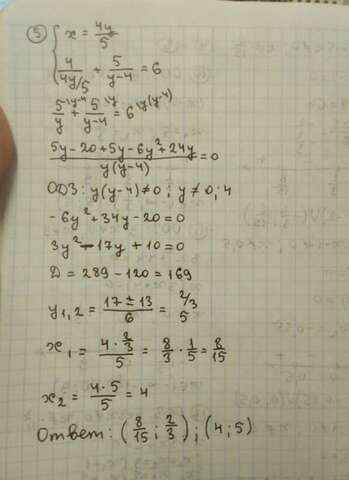 5) { x = 4y/5
4/(4y/5) + 5/(y-4) = 6
5/y \y-4 + 5/(y-4) \y = 6 \y(y-4)
(5y - 20 + 5y - 6y² + 24y)/(y(y-4)) = 0
ОДЗ: y(y-4) ≠ 0; y ≠ 0; 4
-6y² + 34y - 20 = 0
3y² - 17y + 10 = 0
D = 289 - 120 = 169
y₁,₂ = (17 ± 13)/6 = 2/3
5
x₁ = (4 · 2/3)/5 = 8/3 · 1/5 = 8/15
x₂ = (4 · 5)/5 = 4
Ответ: (8/15; 2/3); (4; 5)